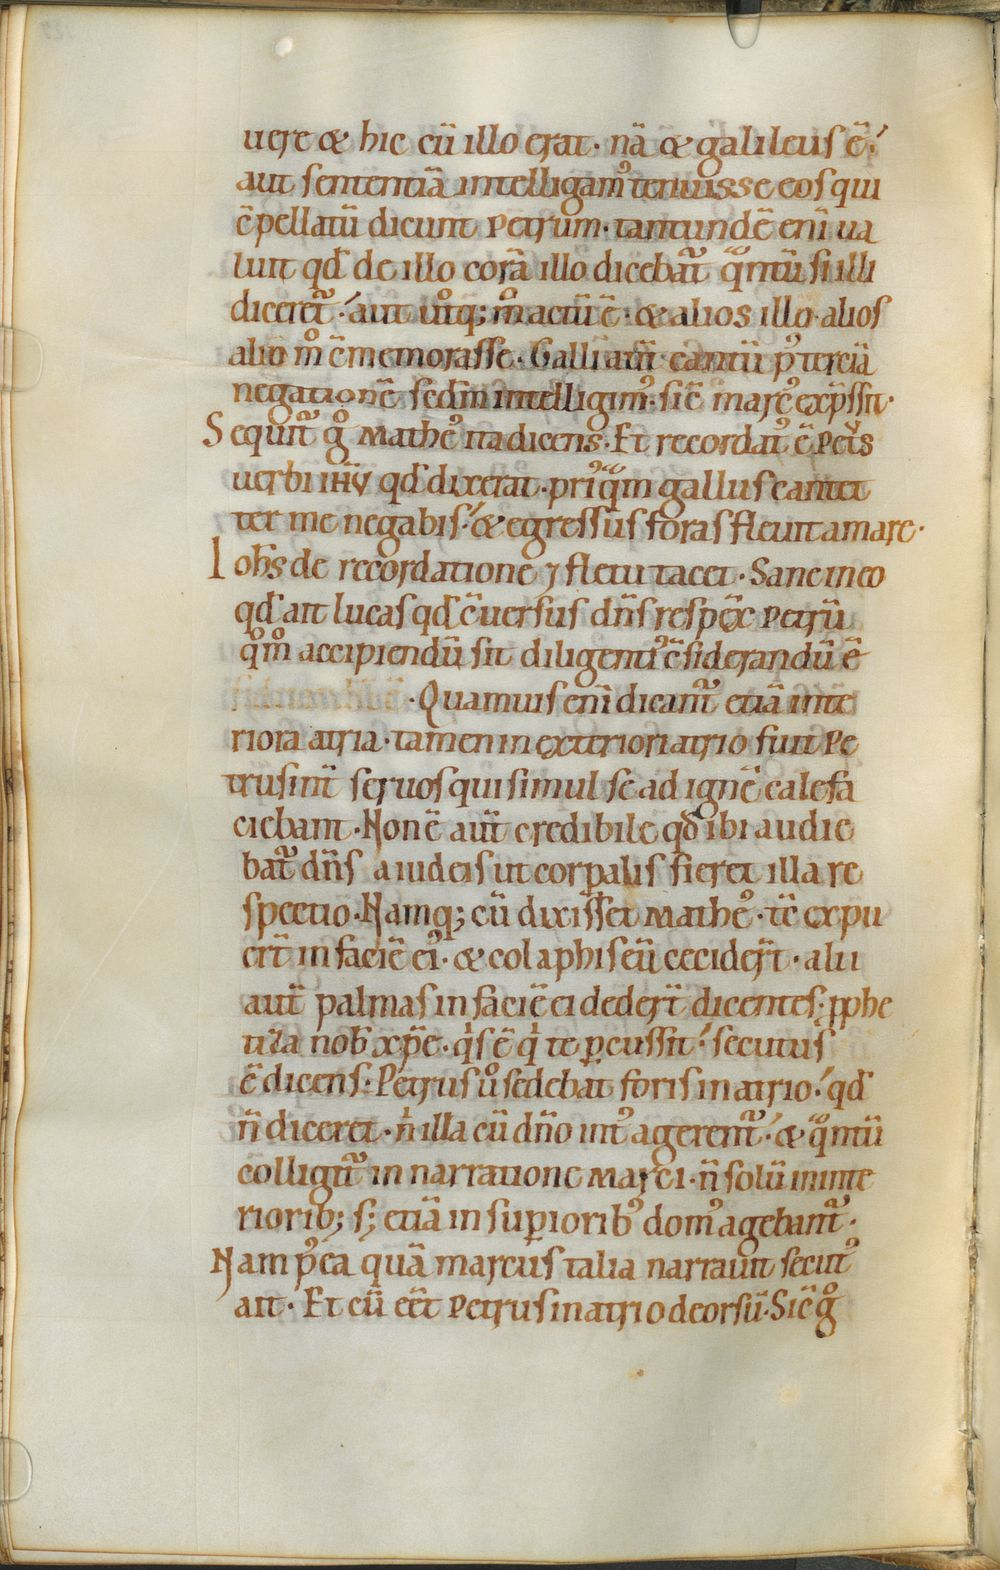 uere & hic cū illo erat· nā & galileus ē·́
aut sententiā intelligam᾿ tenuisse eos qui
c̄pellatū dicunt Petrum· tantundē enī ua
luit qđ de illo corā illo dicebat᷑ qͣntū si illi
diceret᷑·́ aut utͦq; mͦ actū ē· & alios illo· alios
alio mͦ c̄memorasse· Galli aut̄ cantū p᾿ terciā
negationē scđm intelligim᾿· sic̄ marc᾿ exp̄ssit·
Sequit᷑ gͦ Mathe᾿ ita dicens· Et recordat᾿ ē Petᷓs
uerbi ihu qđ dixerat· priͣ qͣm gallus cantet
ter me negabis·́ & egressus foras fleuit amare·
Ioh̄s de recordatione ⁊ fletu tacet· Sane in eo
qđ ait lucas qđ c̄uersus dn̄s respex̄ Petrū
qͦmͦ accipiendū sit diligent᾿ c̄siderandū ē
·Quamuis enī dicant᷑ etiā inte
riora atria· tamen in exteriori atrio fuit Pe
trus int̄ seruos qui simul se ad ignē calefa
ciebant· Non ē aut̄ credibile qđ ibi audie
bat᷑ dn̄s a iudeis ut corpalis fieret illa re
spectio· Namq; cū dixisset Mathe᾿· tc̄ expu
er̄t in faciē ei᾿· & colaphis eū cecider̄t· alii
aut̄ palmas in faciē ei deder̄t dicentes· pphe
tiza nob̄ xp̄e· qͥs ē qͥ te ꝑcussit·́ secutus
ē dicens· Petrus uͦ sedebat foris in atrio·́ qđ
n̄ diceret· nͥ illa cū dn̄o int᾿ agerent᷑·́ & qͣntū
colligit᷑ in narratione Marci· n̄ solū in inte
riorib; s; etiā in suꝑiorib᾿ dom᾿ agebant᷑·
Nam p᾿ea quā marcus talia narrauit secut᾿
ait· Et cū eēt Petrus in atrio deorsū· Sic̄ gͦ